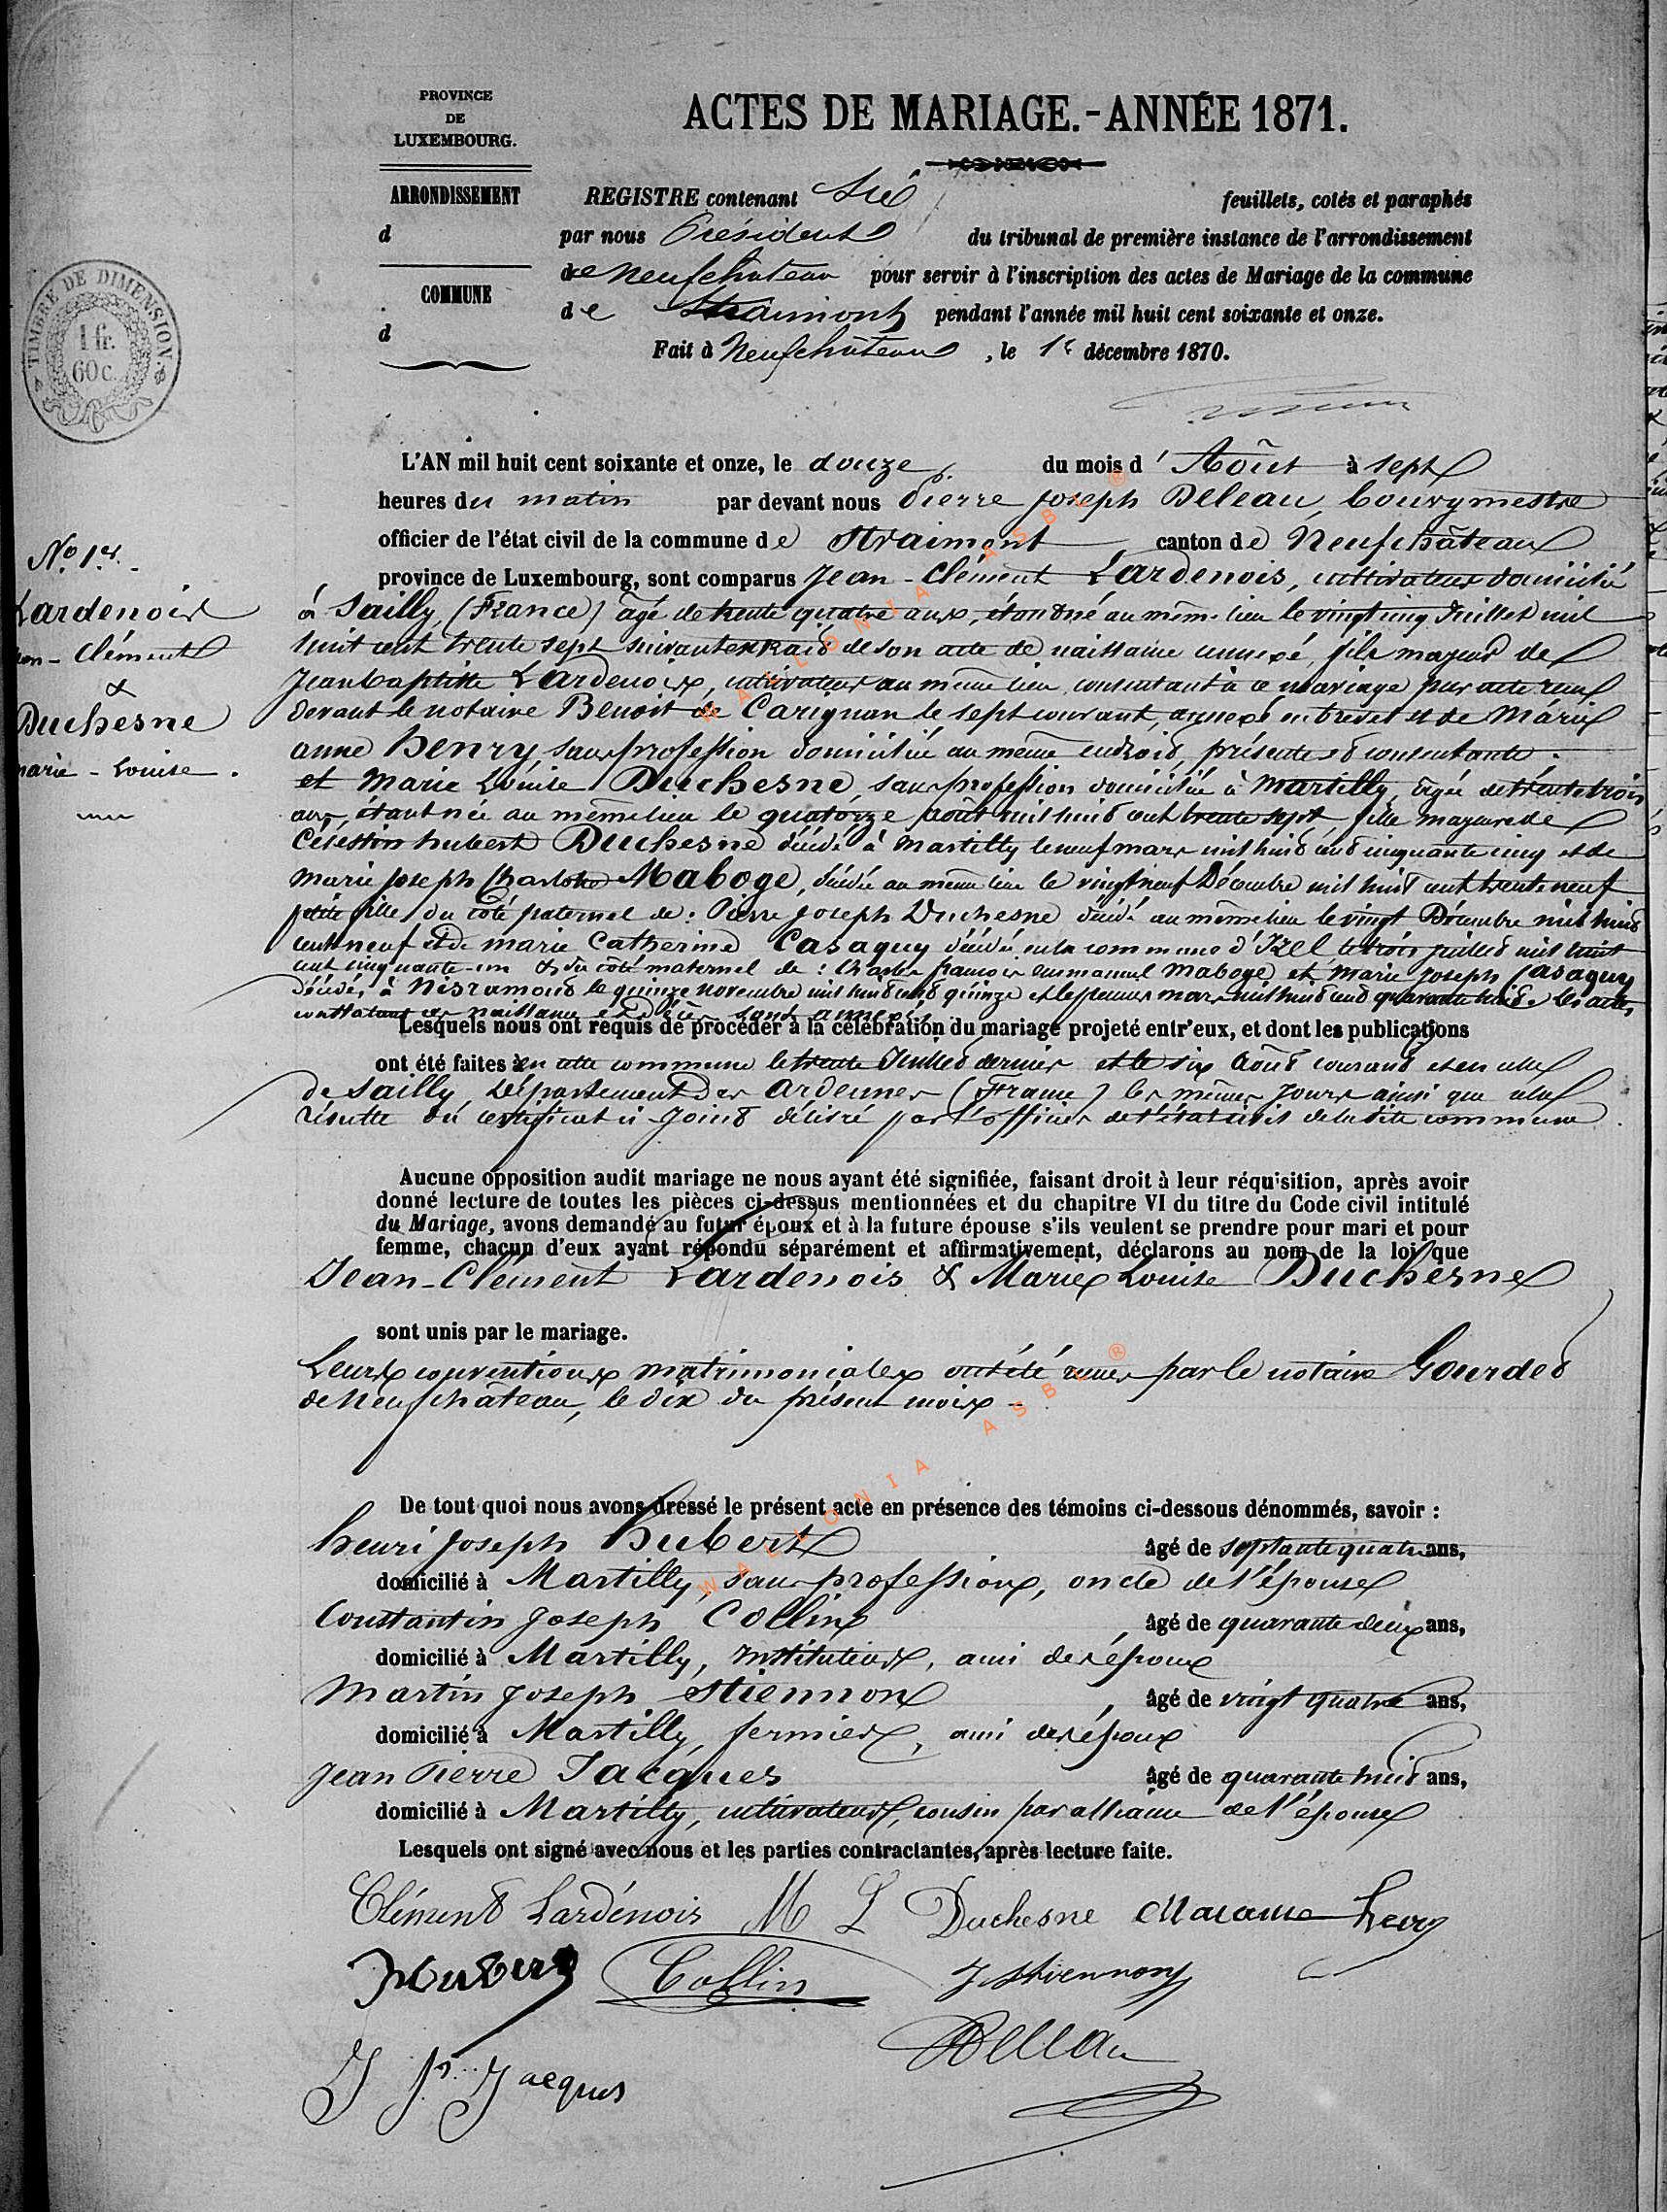 PROVINCE
DE
LUXEMBOURG.
ARRONDISSEMENT
d
COMMUNE
d
TIMBRE DE DIMENSION.
1 fr.
60 c.
ACTES DE MARIAGE.-ANNÉE 1871.
REGISTRE contenant Six feuillets, cotés et paraphés
par nous Président du tribunal de première instance de l'arrondissement
de Neufchateau pour servir à l'inscription des actes de Mariage de la commune
de Straimont pendant l'année mil huit cent soixante et onze.
Fait à Neufchâteau, le 1r décembre 1870.
L'AN mil huit cent soixante et onze, le douze du mois d'Août à sept
heures du matin par devant nous Pierre Joseph Deleau, bourgmestre
officier de l'état civil de la commune de Straimont canton de Neufchâteau
province de Luxembourg, sont comparus Jean-Clément Lardenois, cultivateur domicilié
à Sailly, (France) âgé de trente quatre ans, étant né au même lieu le vingt cinq Juillet mil
huit cent trente sept suivant extrait de son acte de naissance annexé, fils majeur de
Jean baptiste Lardenois, cultivateur au même lieu, consentant à ce mariage par acte reçu
devant le notaire Benoit de Carignan le sept courant, annexé en brevet et de Marie
anne Henry, sans profession domiciliée au même endroit, présente et consentante.
et Marie Louise Duchesne, sans profession domiciliée à Martilly, âgée de trente trois
ans, étant née au même lieu le quatorze août mil huit cent trente sept fille majeure de
Célestin hubert Duchesne décédé à Martilly le neuf mars mil huit cent cinquante cinq et de
Marie Joseph Charlotte Maboge, décédée au même lieu le vingt neuf Décembre mil huit cent trente neuf
petite fille du côté paternel de : Pierre Joseph Duchesne décédé au même lieu le vingt Décembre mil huit
cent neuf et de marie Catherine Casaquy décédée en la commune d'Izel le trois juillet mil huit
cent cinquante-un & du côté maternel de : Charles françois emmanuel Maboge et Marie Joseph Casaquy
décédés à Nisramont le quinze novembre mil huit cent quinze et le premier mars mil huit cent quarante huit. Les actes
constatant ces naissance et décès sont annexés.
Lesquels nous ont requis de procéder à la célébration du mariage projeté entr'eux, et dont les publications
ont été faites en cette commune le trente Juillet dernier et le six Août courant et en celle
de Sailly, Département des Ardennes (France) les mêmes Jours ainsi que cela
résulte du certificat ci joint délivré par l'officier de l'état civil de la dite commune.
Aucune opposition audit mariage ne nous ayant été signifiée, faisant droit à leur réquisition, après avoir
donné lecture de toutes les pièces ci-dessus mentionnées et du chapitre VI du titre du Code civil intitulé
du Mariage, avons demandé au futur époux et à la future épouse s'ils veulent se prendre pour mari et pour
femme, chacun d'eux ayant répondu séparément et affirmativement, déclarons au nom de la loi que
Jean-Clément Lardenois & Marie Louise Duchesne
sont unis par le mariage.
Leurs conventions matrimoniales ont été reçues par le notaire Gourdet
de Neufchâteau, le dix du présent mois -
De tout quoi nous avons dressé le présent acte en présence des témoins ci-dessous dénommés, savoir :
henri Joseph Hubert âgé de septante quatre ans,
domicilié à Martilly, sans profession, oncle de l'épouse
Constantin Joseph Collin âgé de quarante deux ans,
domicilié à Martilly, Instituteur, ami des époux
Martin Joseph Stiennon, âgé de vingt quatre ans,
domicilié à Martilly, fermier, ami des époux
Jean Pierre Jacques âgé de quarante huit ans,
domicilié à Martilly, cultivateur, cousin par alliance de l'épouse
Lesquels ont signé avec nous et les parties contractantes, après lecture faite.
Clément Lardenois M L Duchesne Marianne henry
Hubert Collin J Stiennon
Deleau
J P. Jacques
No 1er.
Lardenois
Clément
&
Duchesne
marie - Louise.
WALLONIA ASBL ®
WALLONIA ASBL ®